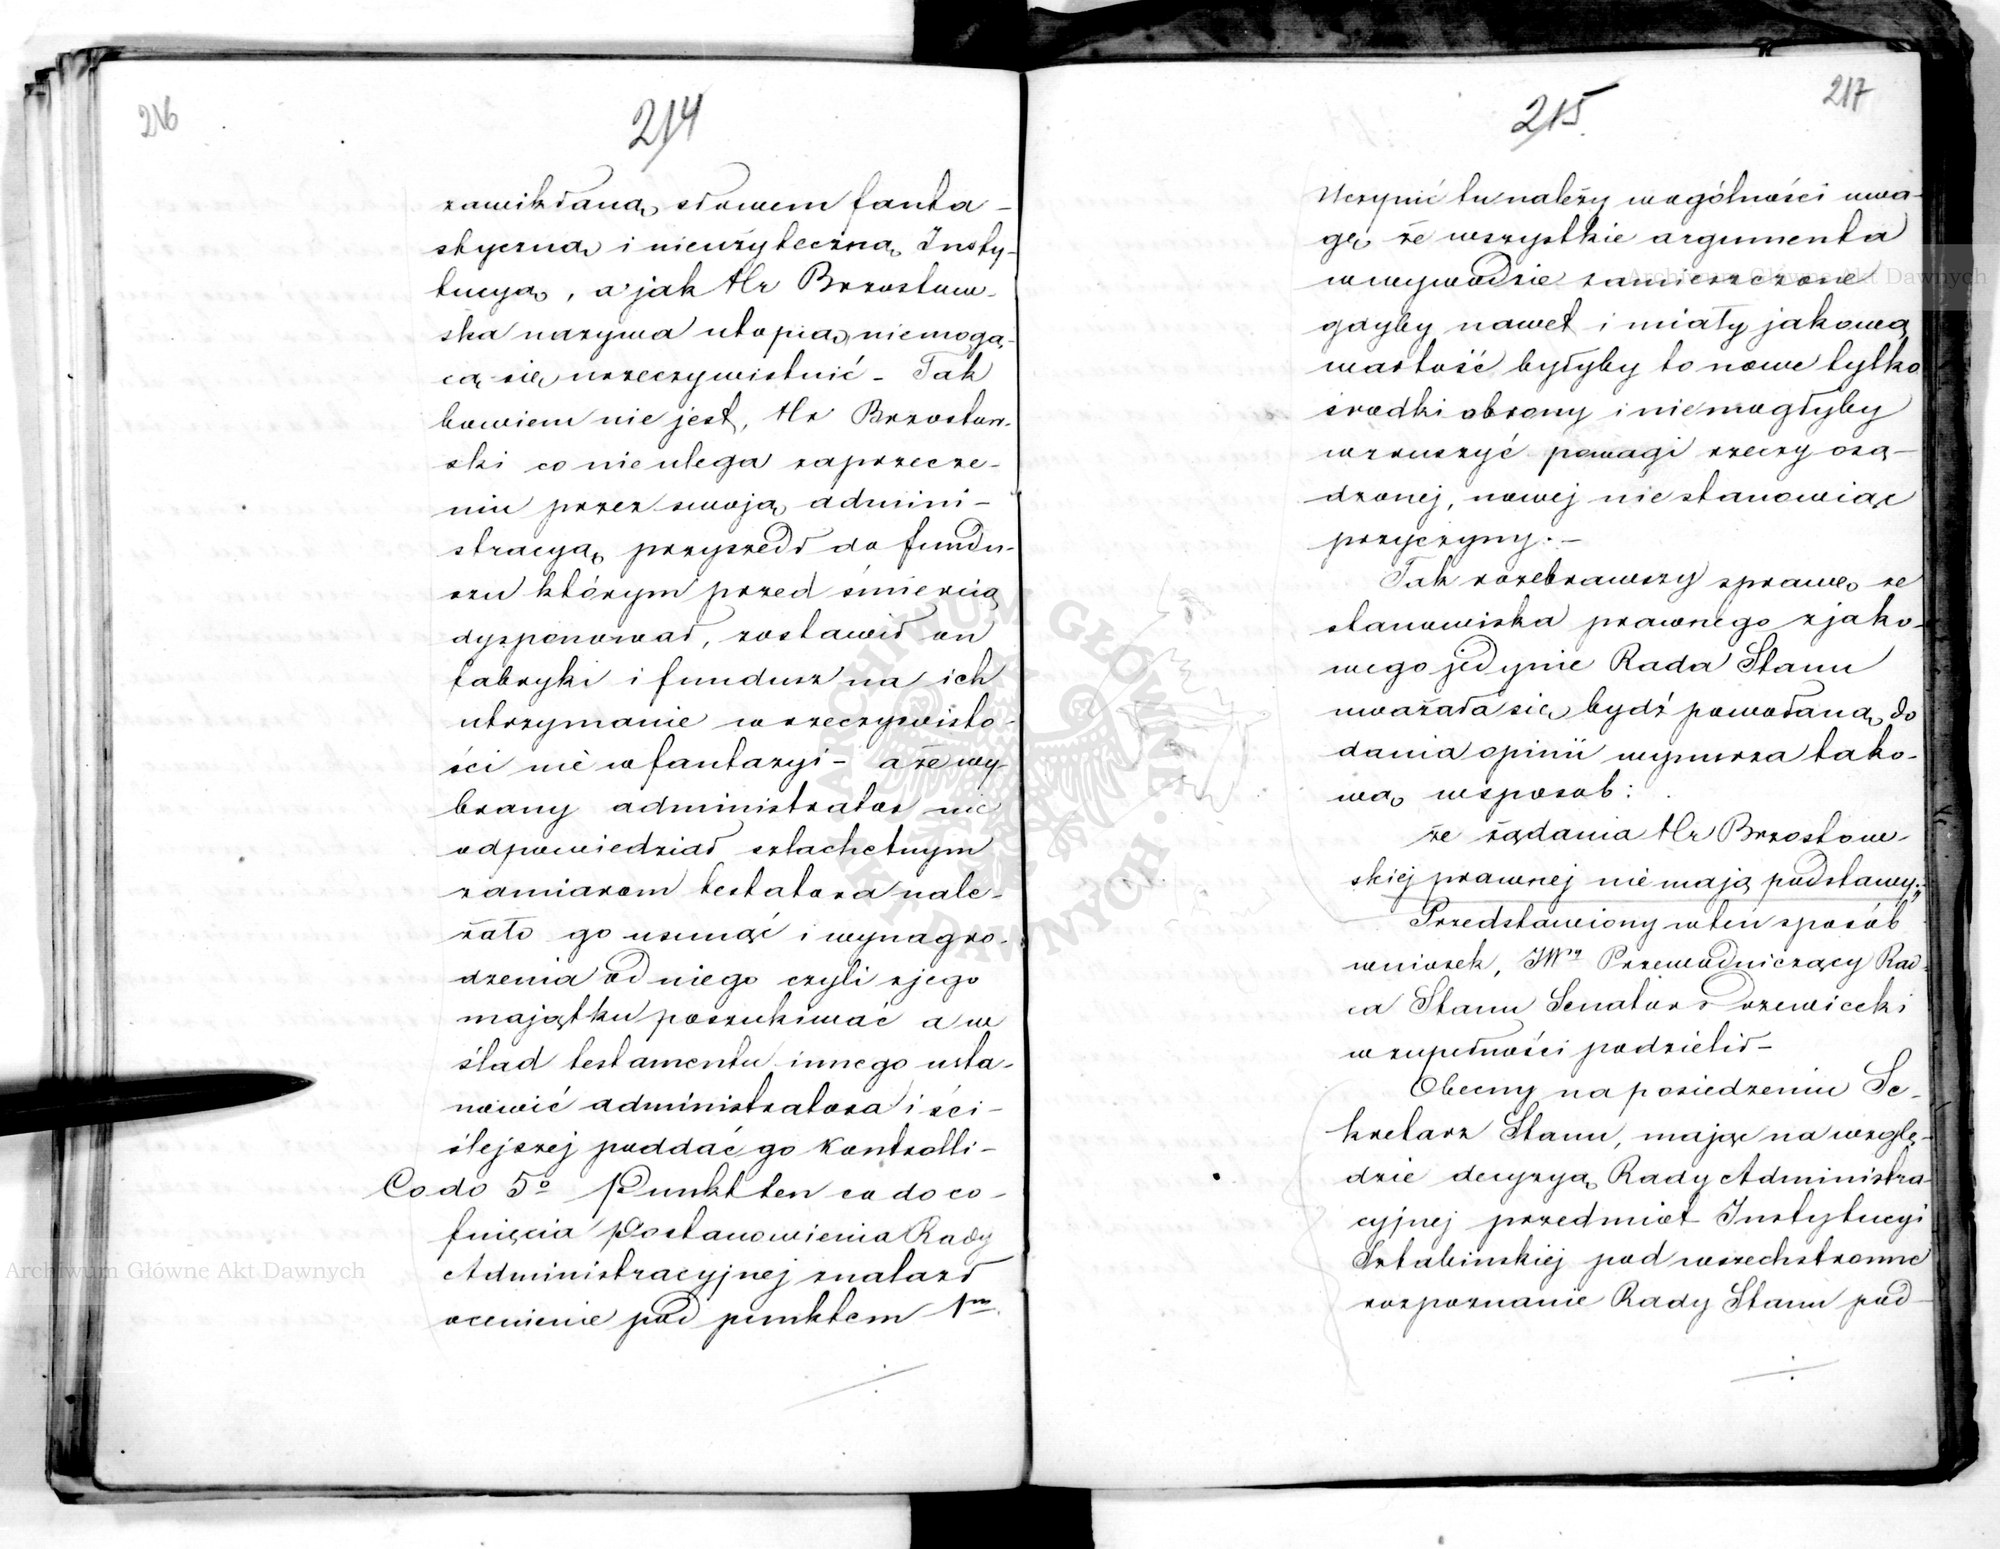 216
214
zawikłaną, słowem fanta-
styczną i nieużyteczną Insty-
tucyą, a jak Hr Brzostow-
ska nazywa utopią, niemogą-
cą się urzeczywistnić - Tak
bowiem nie jest, Hr Brzostow-
ski co nieulega zaprzecze-
niu przez swoją admini-
stracyą przyszedł do fundu-
szu którym przed śmiercią
dysponował, zostawił on
fabryki i fundusz na ich
utrzymanie w rzeczywisto-
ści nie w fantazyi - a że wy-
brany administrator nie
odpowiedział szlachetnym
zamiarom testatora nale-
żało go usunąć i wynagro-
dzenia od niego czyli zjego
majątku poszukiwać a w
ślad testamentu innego usta-
nowić administratora i ści-
ślejszej poddać go Kontrolli -
Co do 5º Punkt ten co do co-
fnięcia Postanowienia Rady
Administracyjnej znalazł
ocenienie pod punktem 1m.
217
215
Uczynić tu należy wogólności uwa-
gę że wszystkie argumenta
w wywodzie zamieszczone
gdyby nawet i miały jakową
wartość byłyby to nowe tylko
środki obrony i niemogłyby
wzruszyć powagi rzeczy osą-
dzonej, nowej nie stanowiąc
przyczyny. -
Tak rozebrawszy sprawę ze
stanowiska prawnego z jako-
wego jedynie Rada Stanu
uważała się bydź powołaną do
dania opinii wynurza tako-
wą wsposób:
że żądania Hr Brzostow-
skiej prawnej nie mają podstawy."
Przedstawiony w ten sposób
wniosek, JWny Przewodniczący Rad-
ca Stanu Senator Drzewiecki
w zupełności podzielił -
Obecny na posiedzeniu Se-
kretarz Stanu, mając na wzglę-
dzie decyzyą Rady Administra-
cyjnej przedmiot Instytucyi
Sztabinskiej pod wszechstronne
rozpoznanie Rady Stanu pod-
Archiwum Główne Akt Dawnych
Archiwum Główne Akt Dawnych
ARCHIWUM GŁÓWNE AKT DAWNYCH